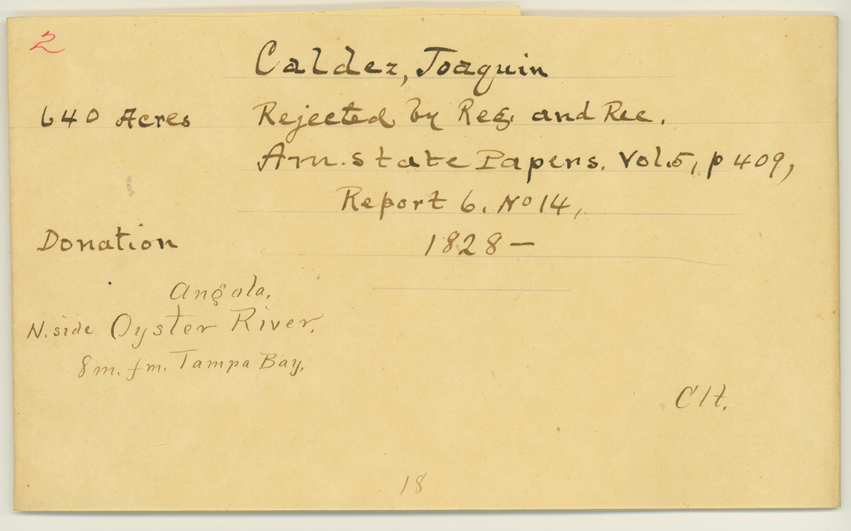 2
Caldez, Joaquin
640 Acres Rejected by Reg. and Rec.
Am. State Papers. Vol. 5, p 409,
Report 6. No 14,
Donation 1828 —
Angola,
N. side Oyster River.
8 m. fm. Tampa Bay.
Clt.
18